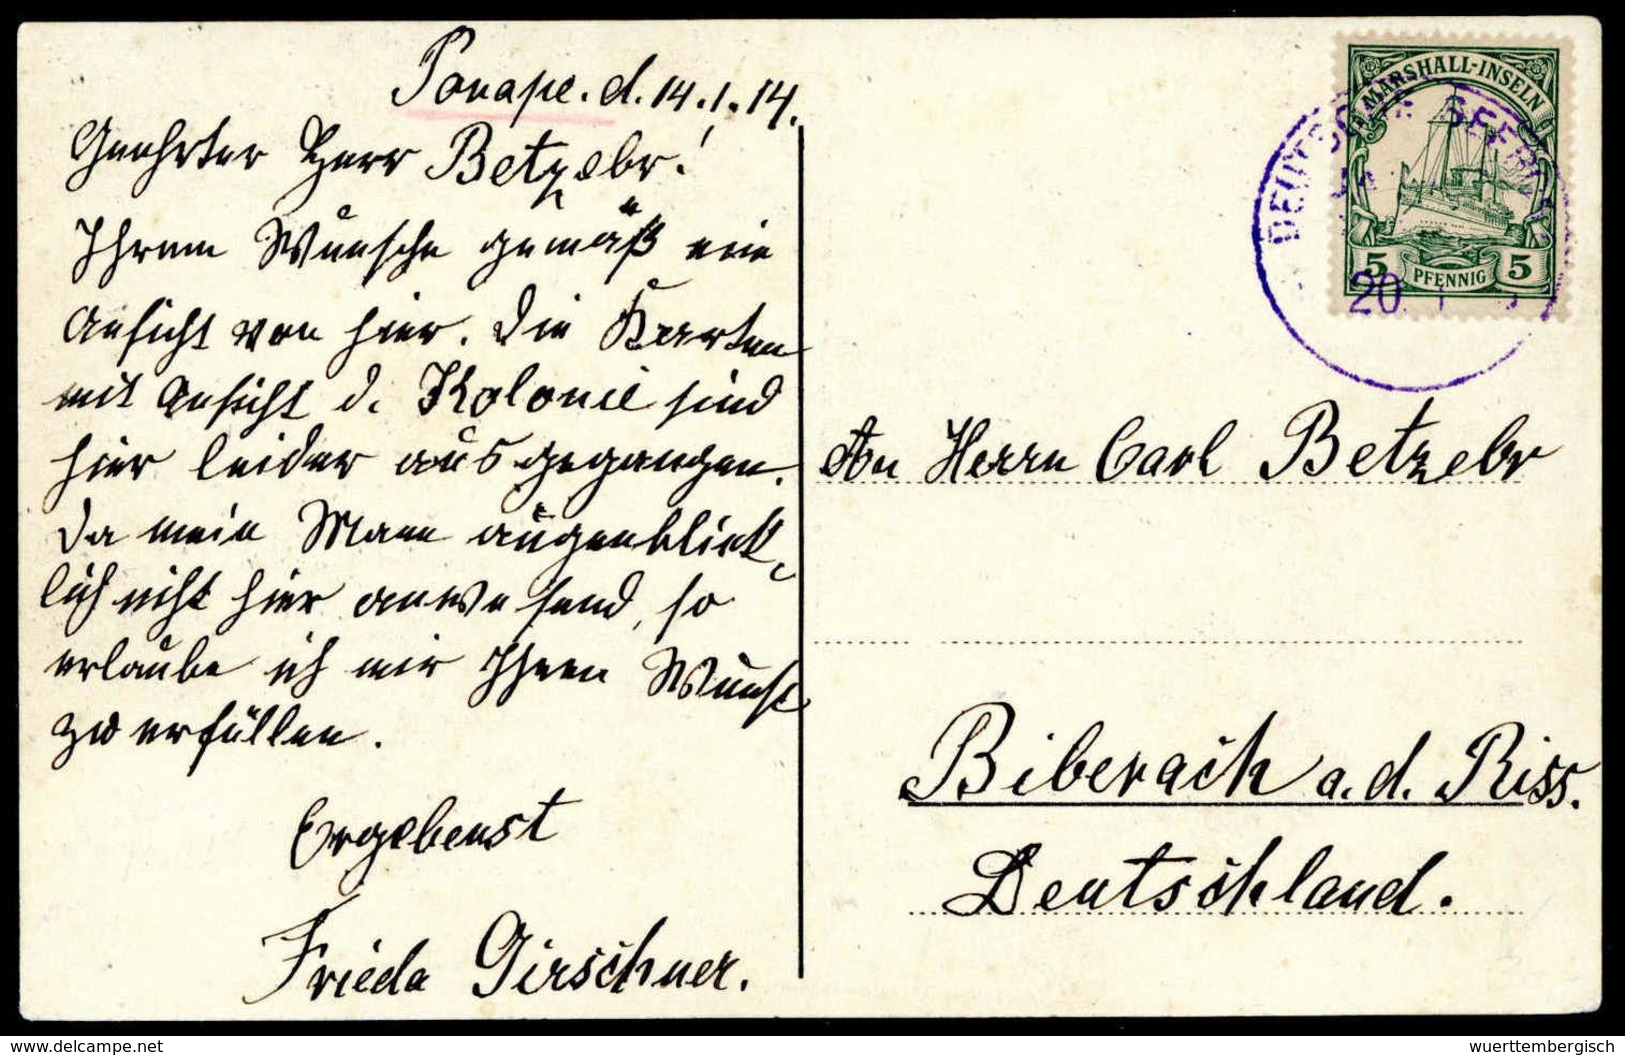 Ponape. d. 14.1.14.
Geehrter Herr Betzebr!
Ihrem Wunsche gemäß eine
Ansicht von hier. Die Karten
mit Ansicht d. Kolonie sind
hier leider ausgegangen.
Da mein Mann augenblick-
lich nicht hier anwesend, so
erlaube ich mir Ihren Wunsch
zu erfüllen.
Ergebenst
Frieda Girschner.
MARSHALL-INSELN
5 PFENNIG 5
DEUTSCHE SEEPOST
20
An Herrn Carl Betzebr
Biberach a. d. Riss.
Deutschland.
www.delcampe.net
wuerttembergisch